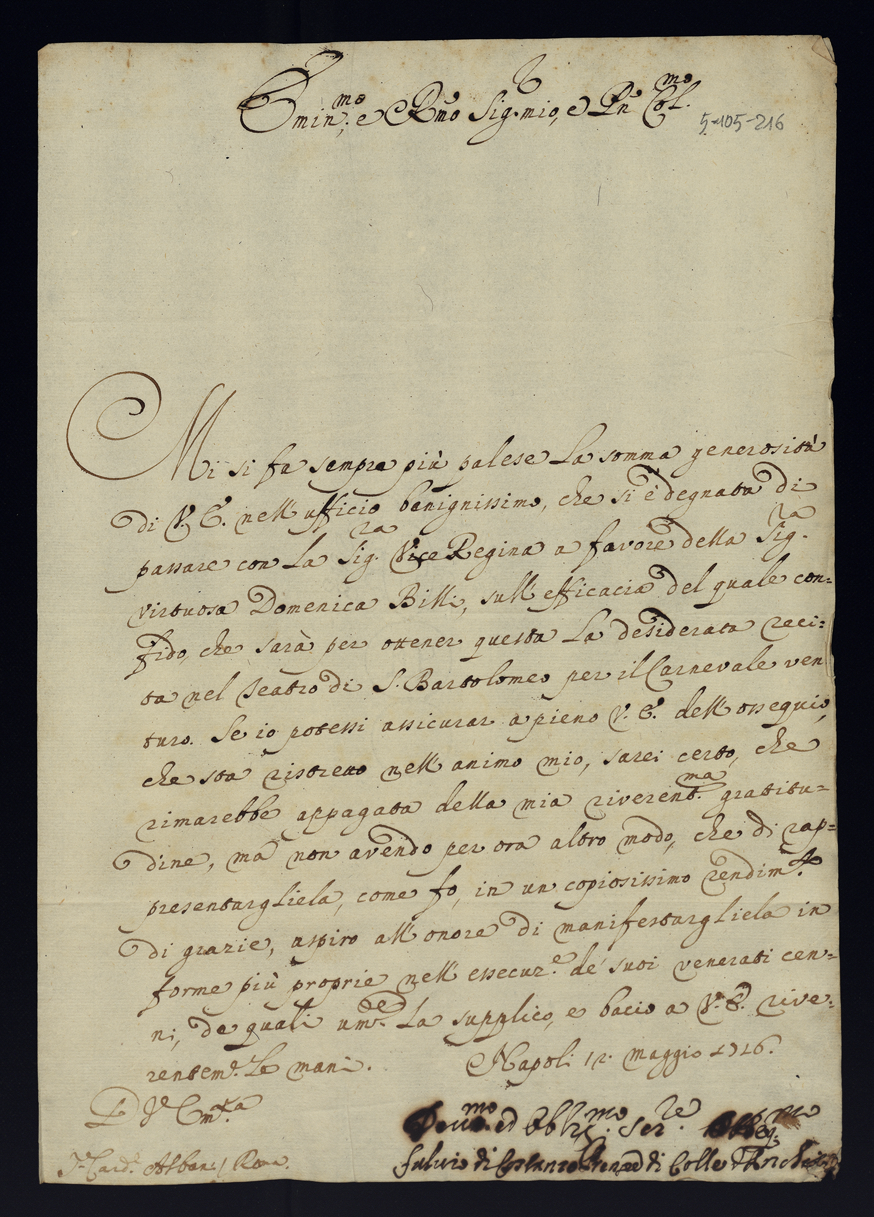 Emin.mo e Rmo Sig. mio, e Pn Col.mo
5-105-216
Mi si fa sempre più palese la somma generosità
di V. E. nell ufficio benignissimo, che si è degnata di
passare con la Sig.ra Vice Regina a favore della Sig.ra
virtuosa Domenica Billi, sull efficacia del quale con=
fido, che sarà per ottener questa la desiderata reci=
ta nel Teatro di S. Bartolomeo per il Carnevale ven
turo. Se io potessi assicurar a pieno V. E. dell ossequio,
che sta ristretto nell animo mio, sarei certo, che
rimarebbe appagata della mia riverent.ma gratitu=
dine, ma non avendo per ora altro modo, che di rap=
presentargliela, come fo, in un copiosissimo rendim.to
di grazie, aspiro all onore di manifestargliela in
forme più proprie nell essecuz.e de suoi venerati cen=
ni, de quali um.te la supplico, e bacio a V. E. rive=
rentem.e le mani.
Napoli 12. Maggio 1726.
D V Em.za
Dev.mo ed Obblig.mo Ser.re Osseq.mo
S. Card. Albani / Roma.
Fulvio di Costanzo di Colle d'Anchise